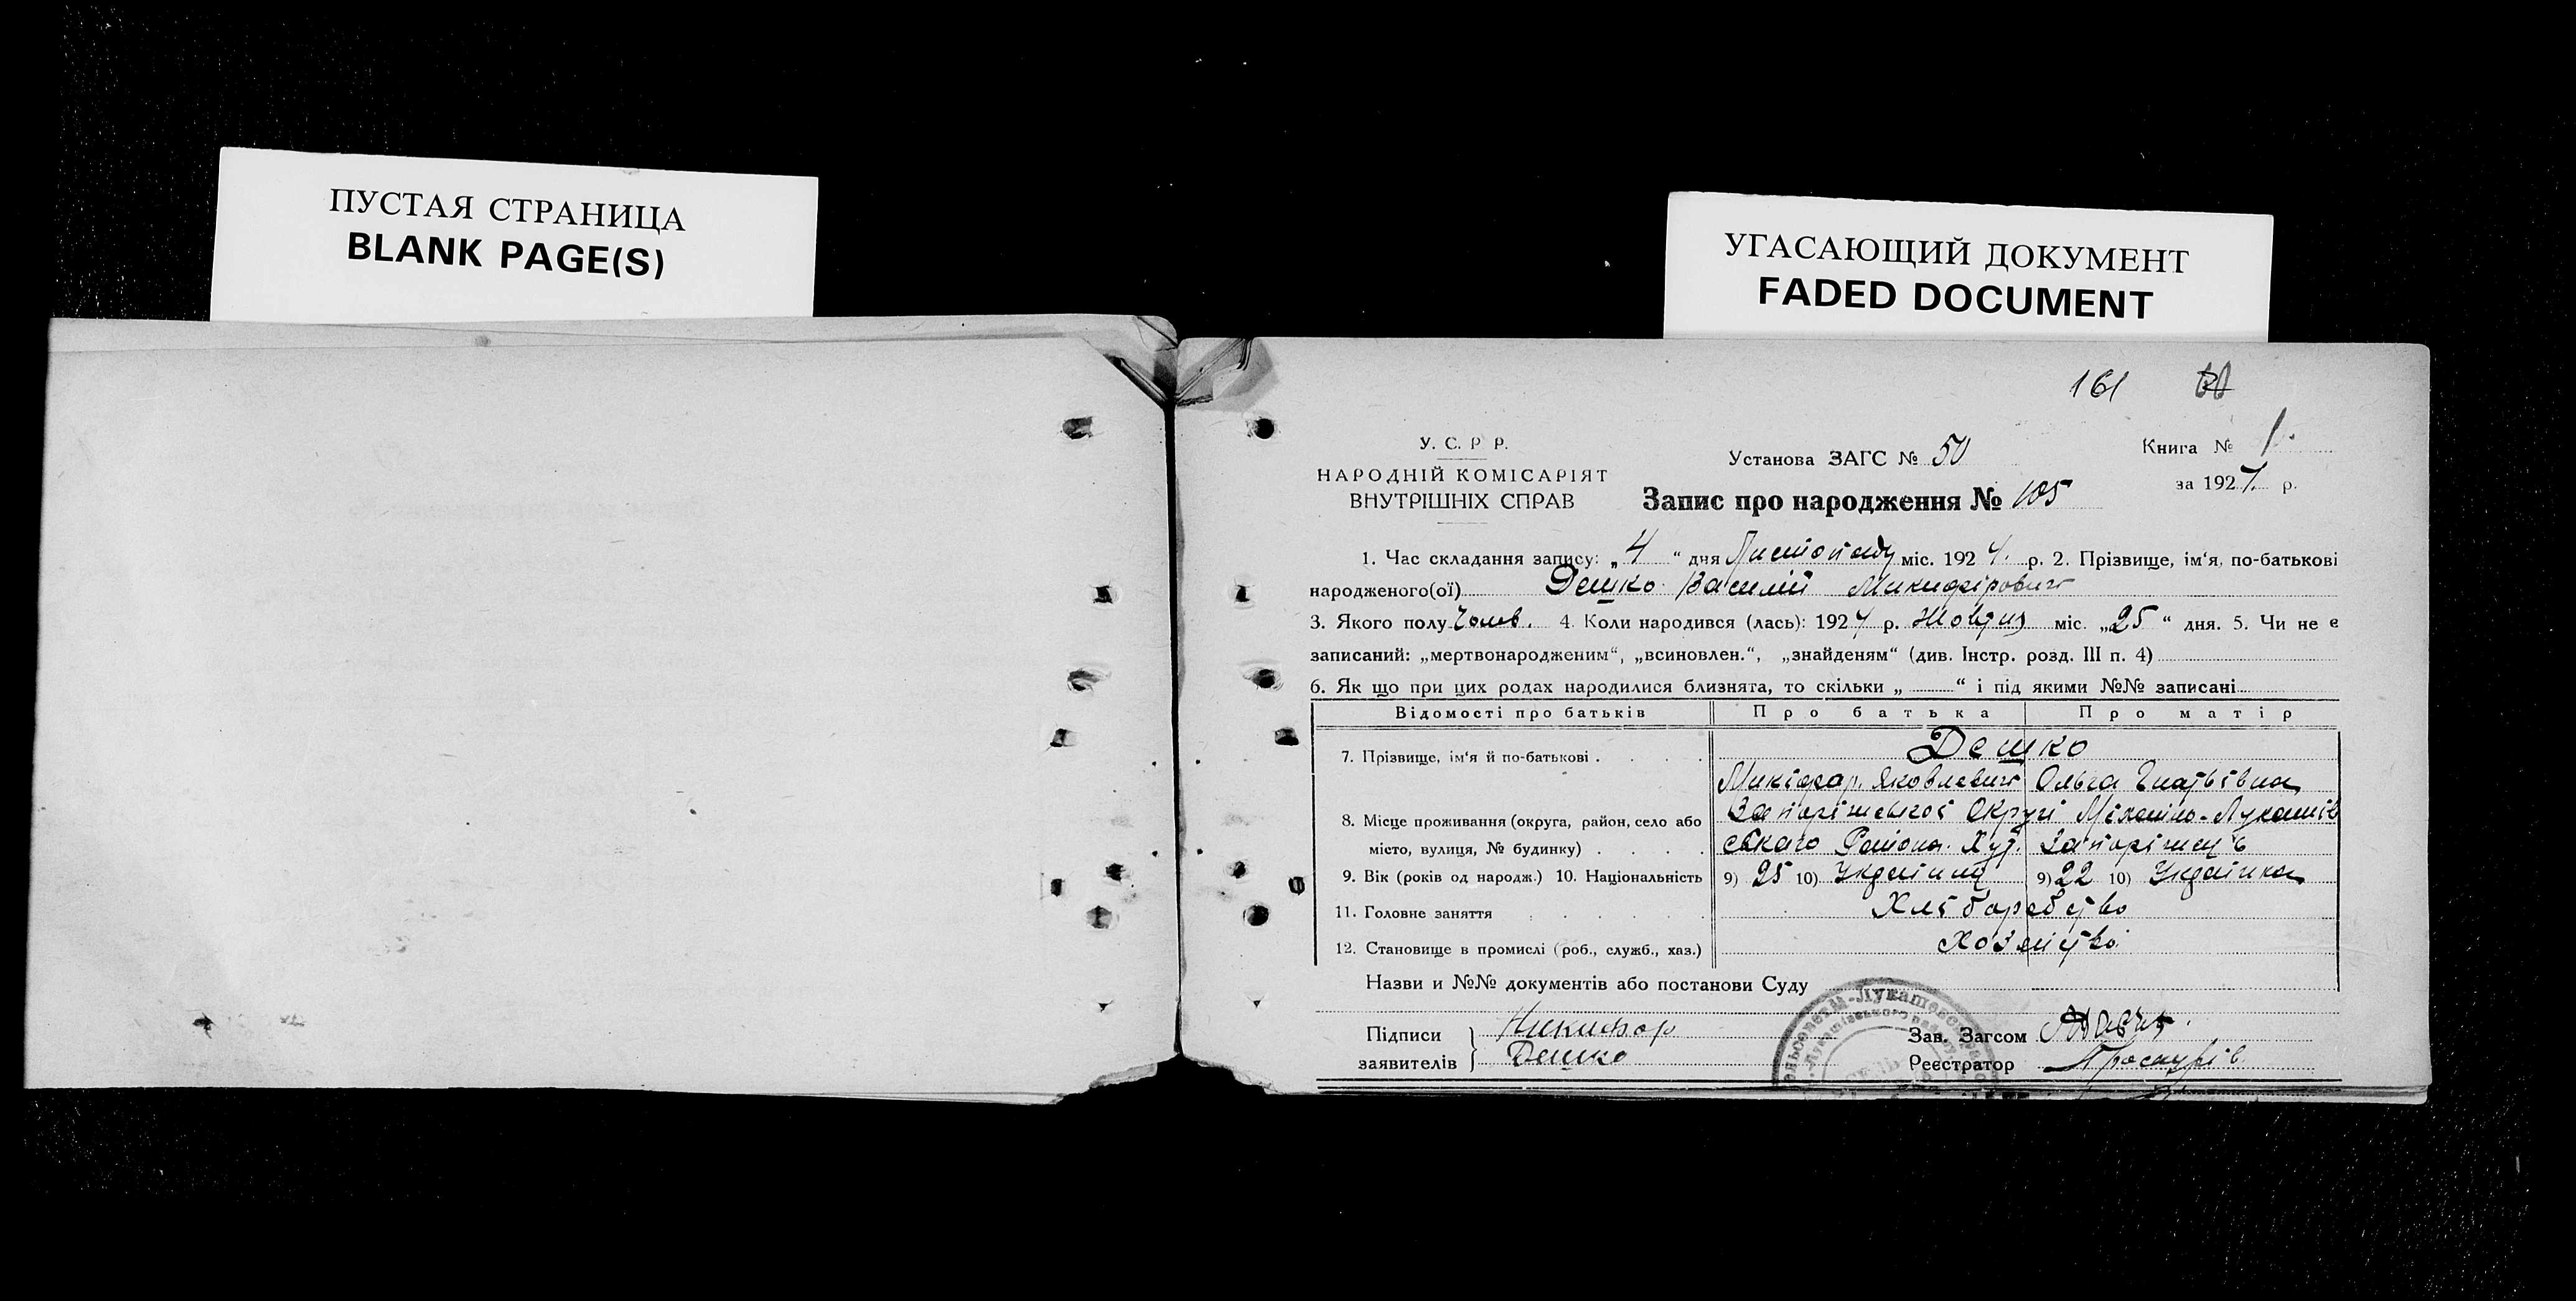 ПУСТАЯ СТРАНИЦА
BLANK PAGE(S)
УГАСАЮЩИЙ ДОКУМЕНТ
FADED DOCUMENT
161
У. С. Р Р.
НАРОДНІЙ КОМІСАРІЯТ
ВНУТРІШНІХ СПРАВ
Установа ЗАГС № 50
Книга № 1.
за 1927 р.
Запис про народження № 105
1. Час складання запису: „ 4 “ дня Листопаду міс. 1927. р. 2. Прізвище, ім‘я, по-батькові
народженого(ої) Дешко Василій Микифірович
3. Якого полу Чолов. 4. Коли народився (лась): 1927 р. Жовтня міс. „ 25 “ дня. 5. Чи не є
записаний: „мертвонародженим“, „всиновлен.“, „знайденям“ (див. Інстр. розд. III п. 4)
6. Як що при цих родах народилися близнята, то скільки „ “ і під якими №№ записані
Відомості про батьків Про батька Про матір
7. Прізвище, ім‘я й по-батькові . Дешко
Микіфар. Яковлевич Ольга Гнатівна
8. Місце проживання (округа, район, село або Запоріжської Округі Міхайло-Лукашів
місто, вулиця, № будинку) . ського Района. Хут. Запоріжец
9. Вік (років од народж.) 10. Національність 9) 25 10) Українець 9) 22 10) Українка
11. Головне заняття Хліборобство
12. Становище в промислі (роб., служб., хаз.) Хозяйство
Назви и №№ документів або постанови Суду
Підписи Никифор
заявителів Дешко
Зав. Загсом
Реєстратор Проскурів